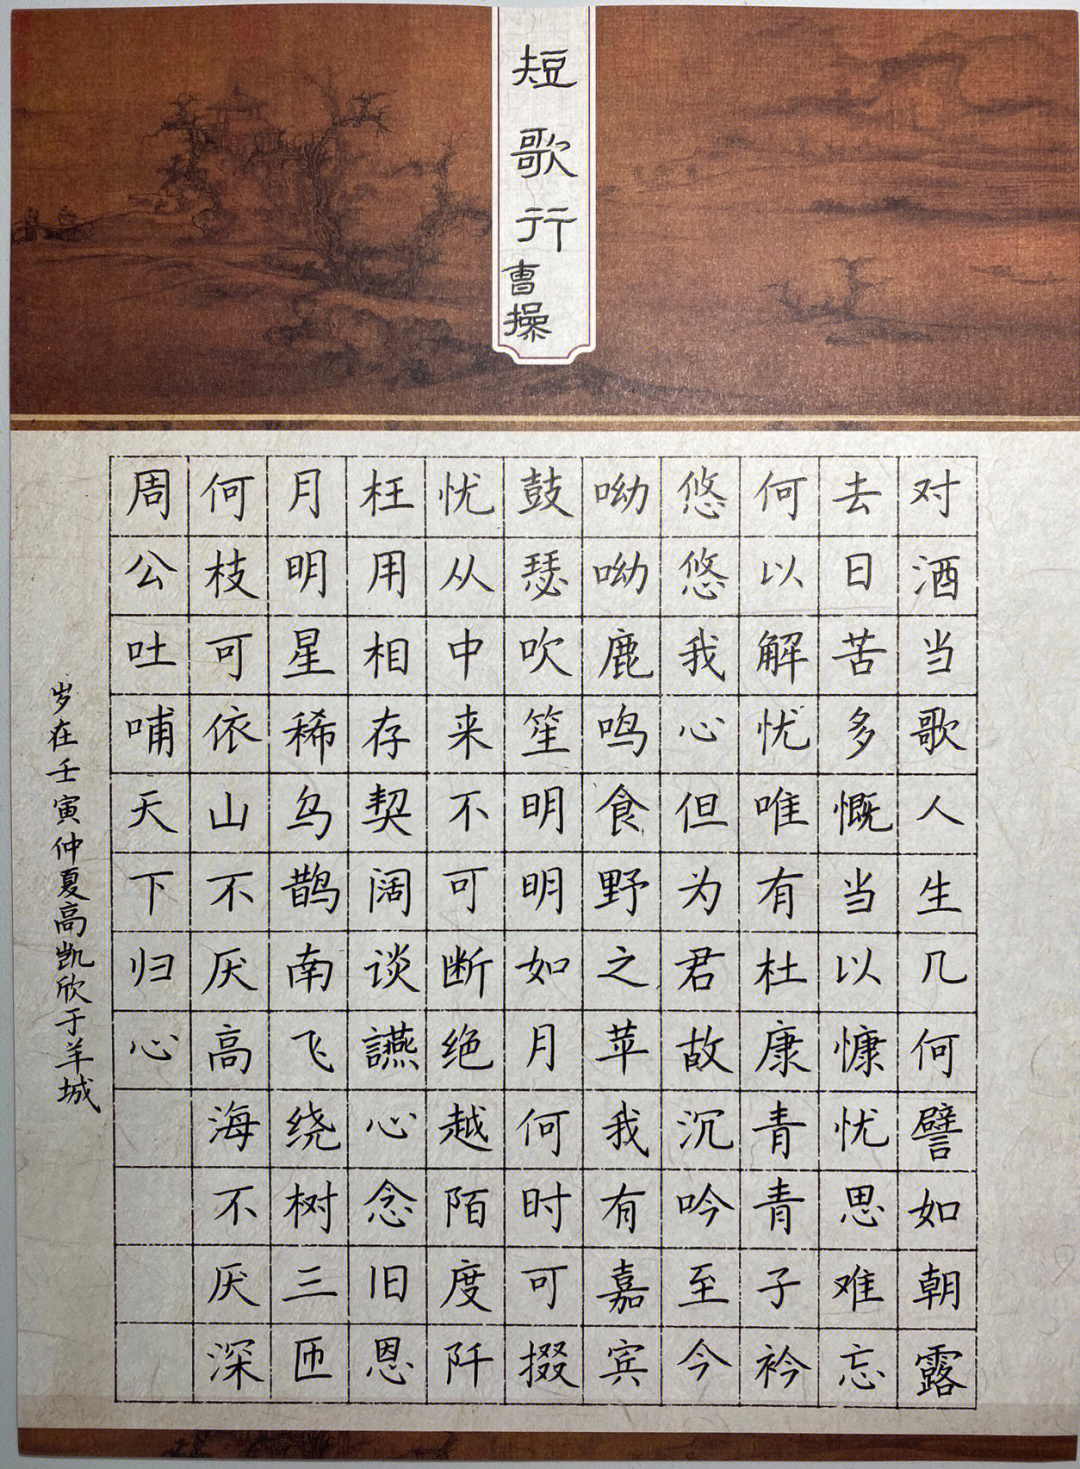 短歌行
曹操
对酒当歌人生几何譬如朝露
去日苦多慨当以慷忧思难忘
何以解忧唯有杜康青青子衿
悠悠我心但为君故沉吟至今
呦呦鹿鸣食野之苹我有嘉宾
鼓瑟吹笙明明如月何时可掇
忧从中来不可断绝越陌度阡
枉用相存契阔谈讌心念旧恩
月明星稀乌鹊南飞绕树三匝
何枝可依山不厌高海不厌深
周公吐哺天下归心
岁在壬寅仲夏高凯欣于羊城